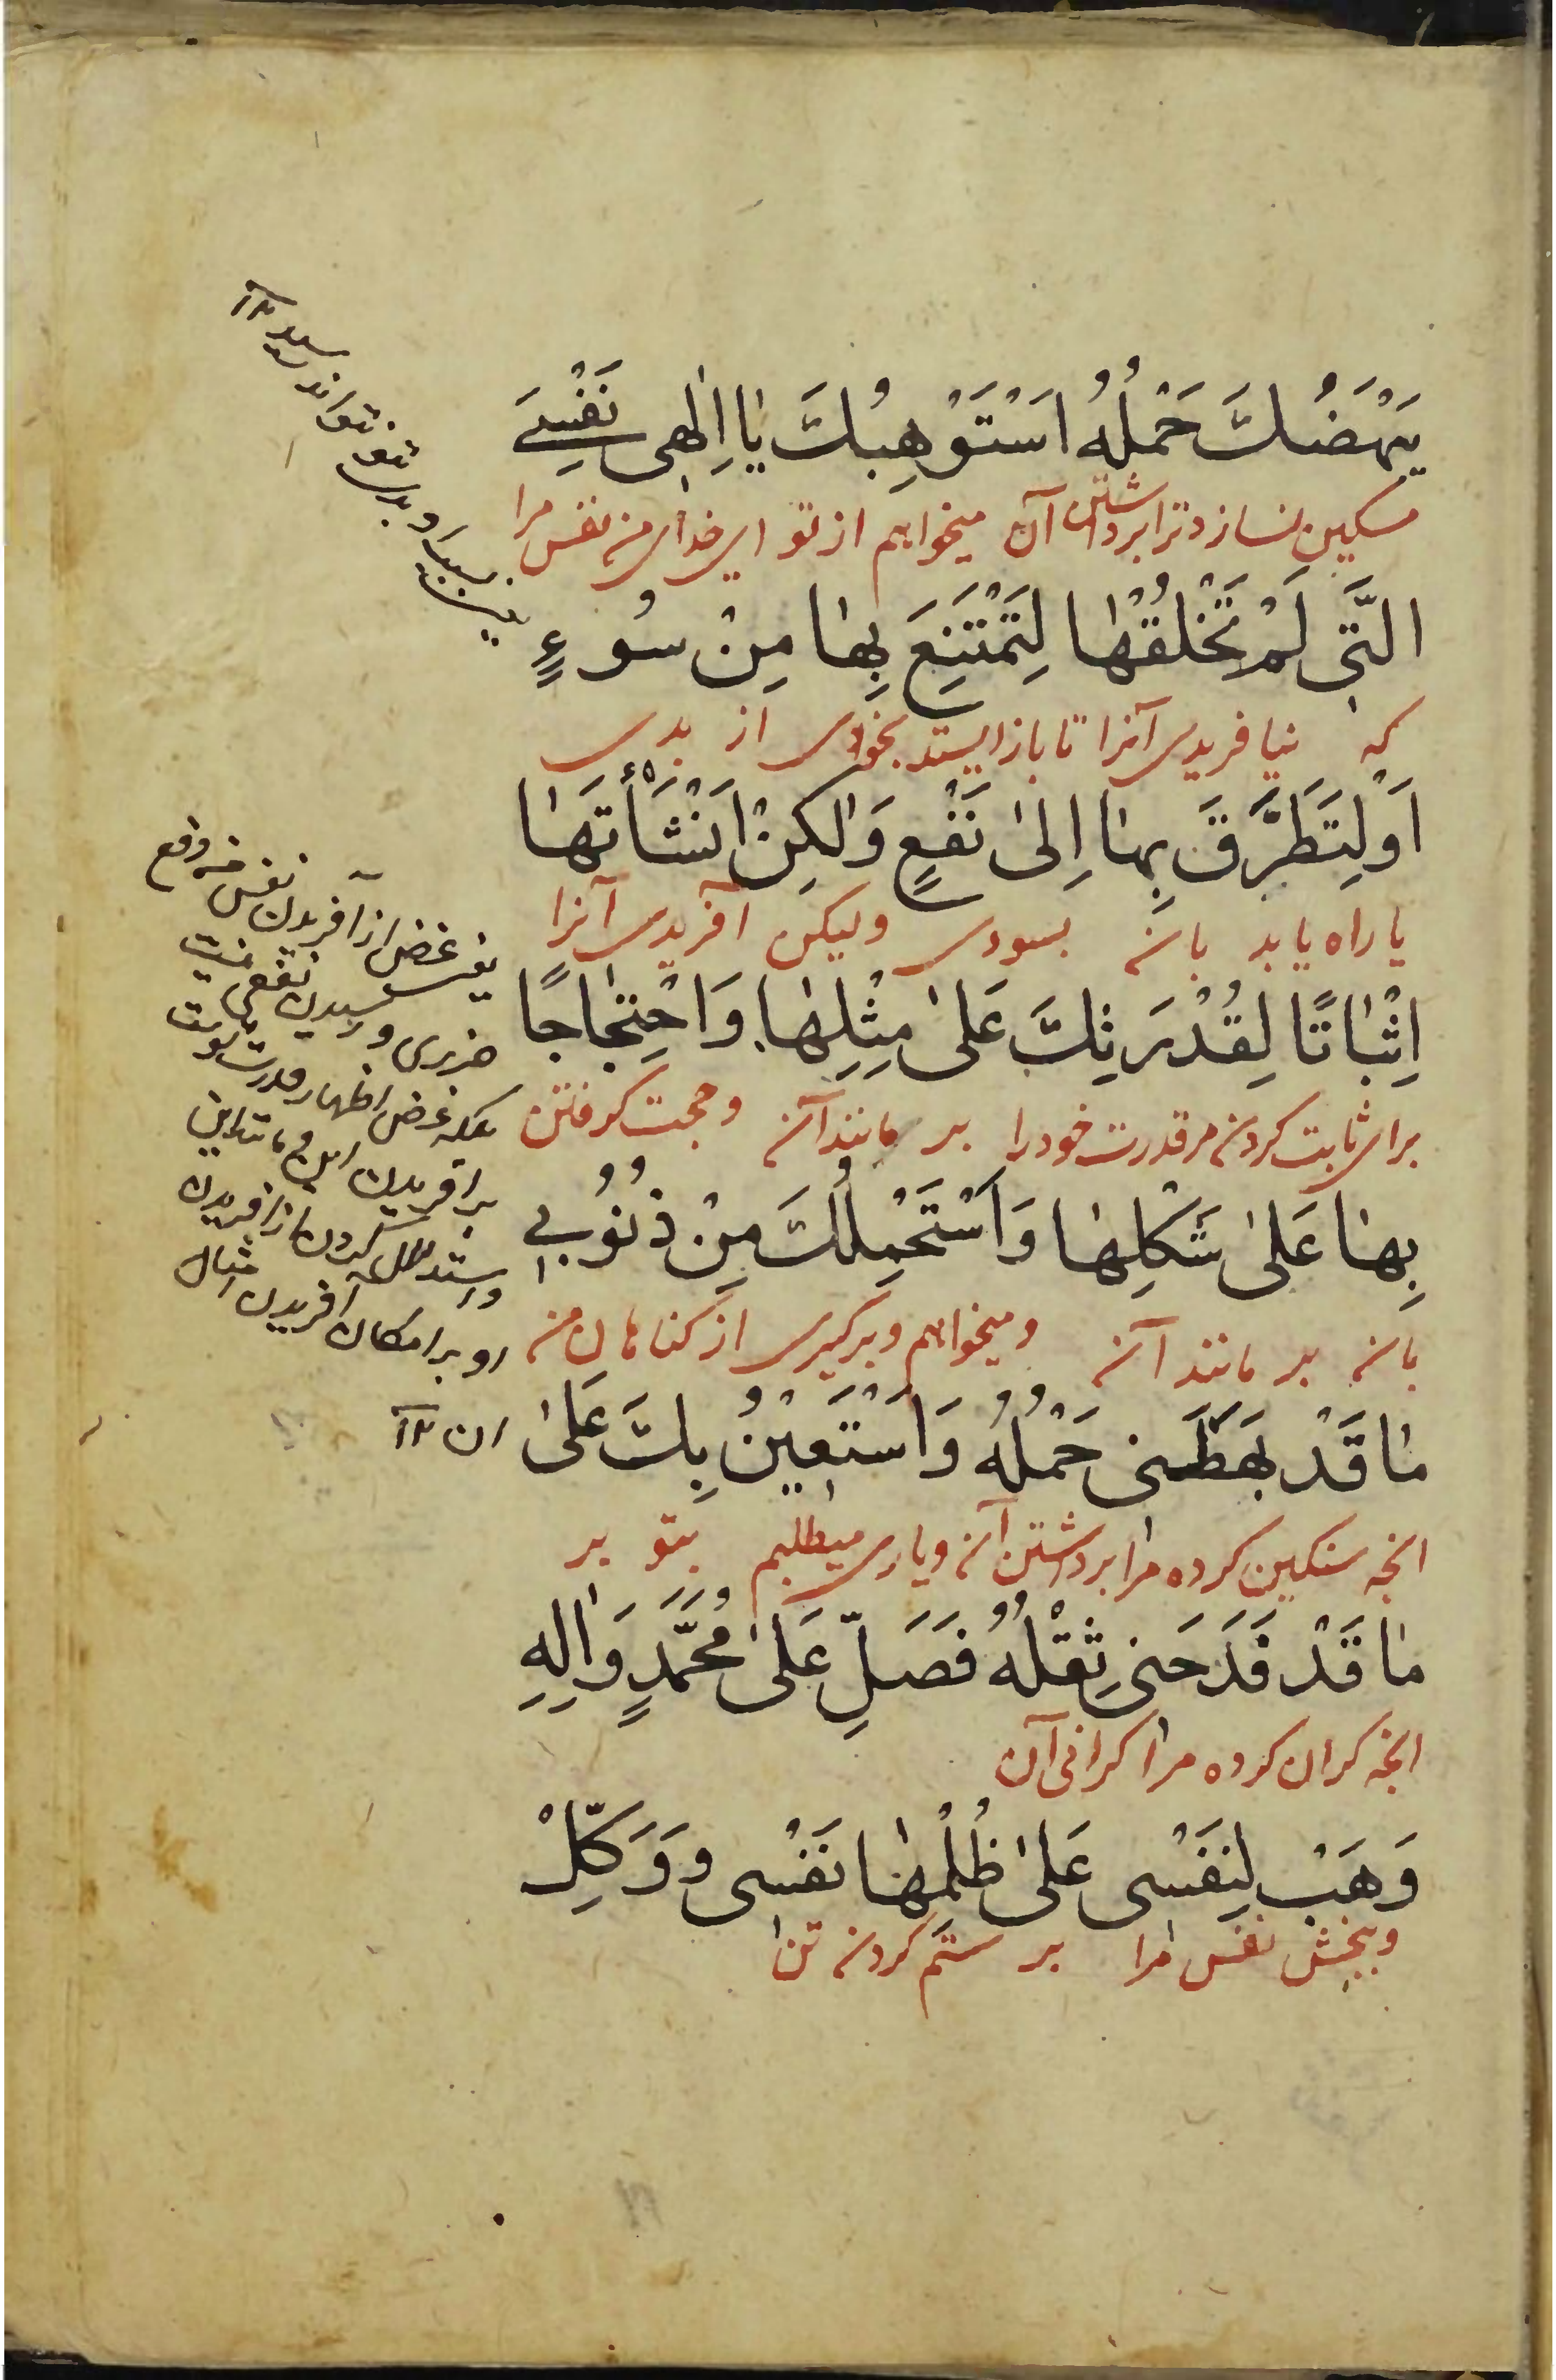 يَبْهَضُكَ حَمْلُهُ اَسْتَوْهِبُكَ يَا اِلٰهِى نَفْسِىَ
سنکین نسازد ترا برداشتن آن میخواهم از تو ای خدای من نفس مرا
الَّتِى لَمْ تَخْلُقْهَا لِتَمْتَنِعَ بِهَا مِنْ سُوءٍ
که نیافریدی آنرا تا باز ایستد بخودی از بدی
اَوْ لِتَطَرَّقَ بِهَا اِلىٰ نَفْعٍ وَلٰكِنْ اَنْشَأْتَهَا
یا راه یابد بان بسودی ولیکن آفریدی آنرا
اِثْبَاتًا لِقُدْرَتِكَ عَلىٰ مِثْلِهَا وَاحْتِجَاجًا
برای ثابت کردن مر قدرت خود را بر مانند آن و حجت کرفتن
بِهَا عَلىٰ شَكْلِهَا وَاَسْتَحْمِلُكَ مِنْ ذُنُوبِى
بان بر مانند آن و میخواهم و برکیری از کناهان من
مَا قَدْ بَهَظَنِى حَمْلُهُ وَاَسْتَعِيْنُ بِكَ عَلىٰ
انچه سنکین کرده مرا برداشتن آن و یاری میطلبم بتو بر
مَا قَدْ فَدَحَنِى ثِقْلُهُ فَصَلِّ عَلىٰ مُحَمَّدٍ وَاٰلِهِ
انچه کران کرده مرا کرانی آن
وَهَبْ لِنَفْسِى عَلىٰ ظُلْمِهَا نَفْسِى وَ وَكِّلْ
و ببخش نفس مرا بر ستم کردن تن
یعنی غرض از آفریدن نفس من دفع
ضرری و رسیدن نفعی نیست
بلکه غرض اظهار قدرت تست
بر آفریدن این و مانند این
و استدلال کردن از آفریدن
او بر امکان آفریدن امثال
ان ١٢